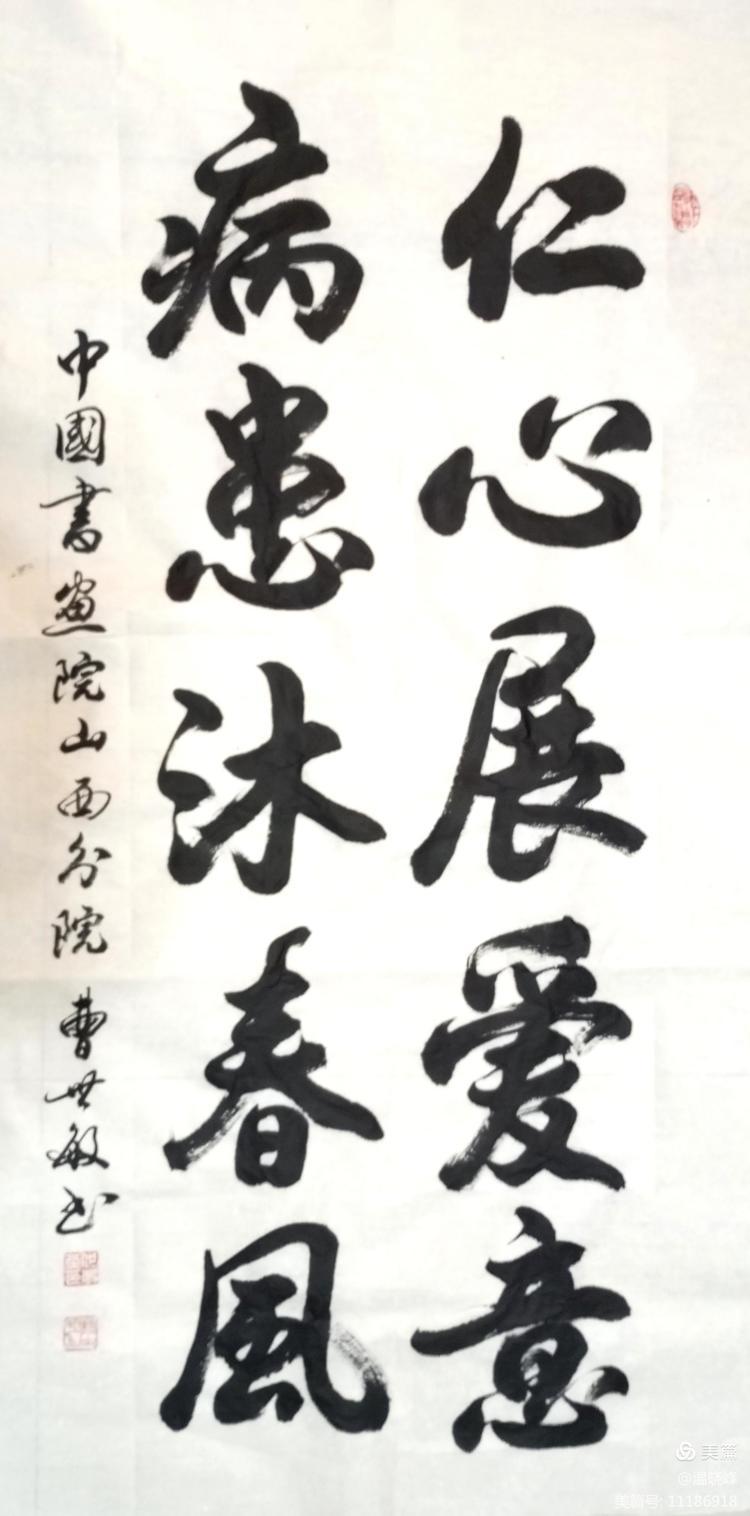 仁心展爱意
病患沐春風
中國書画院山西分院 曹世敏书
美篇
@温晓峰
美篇号: 11186918